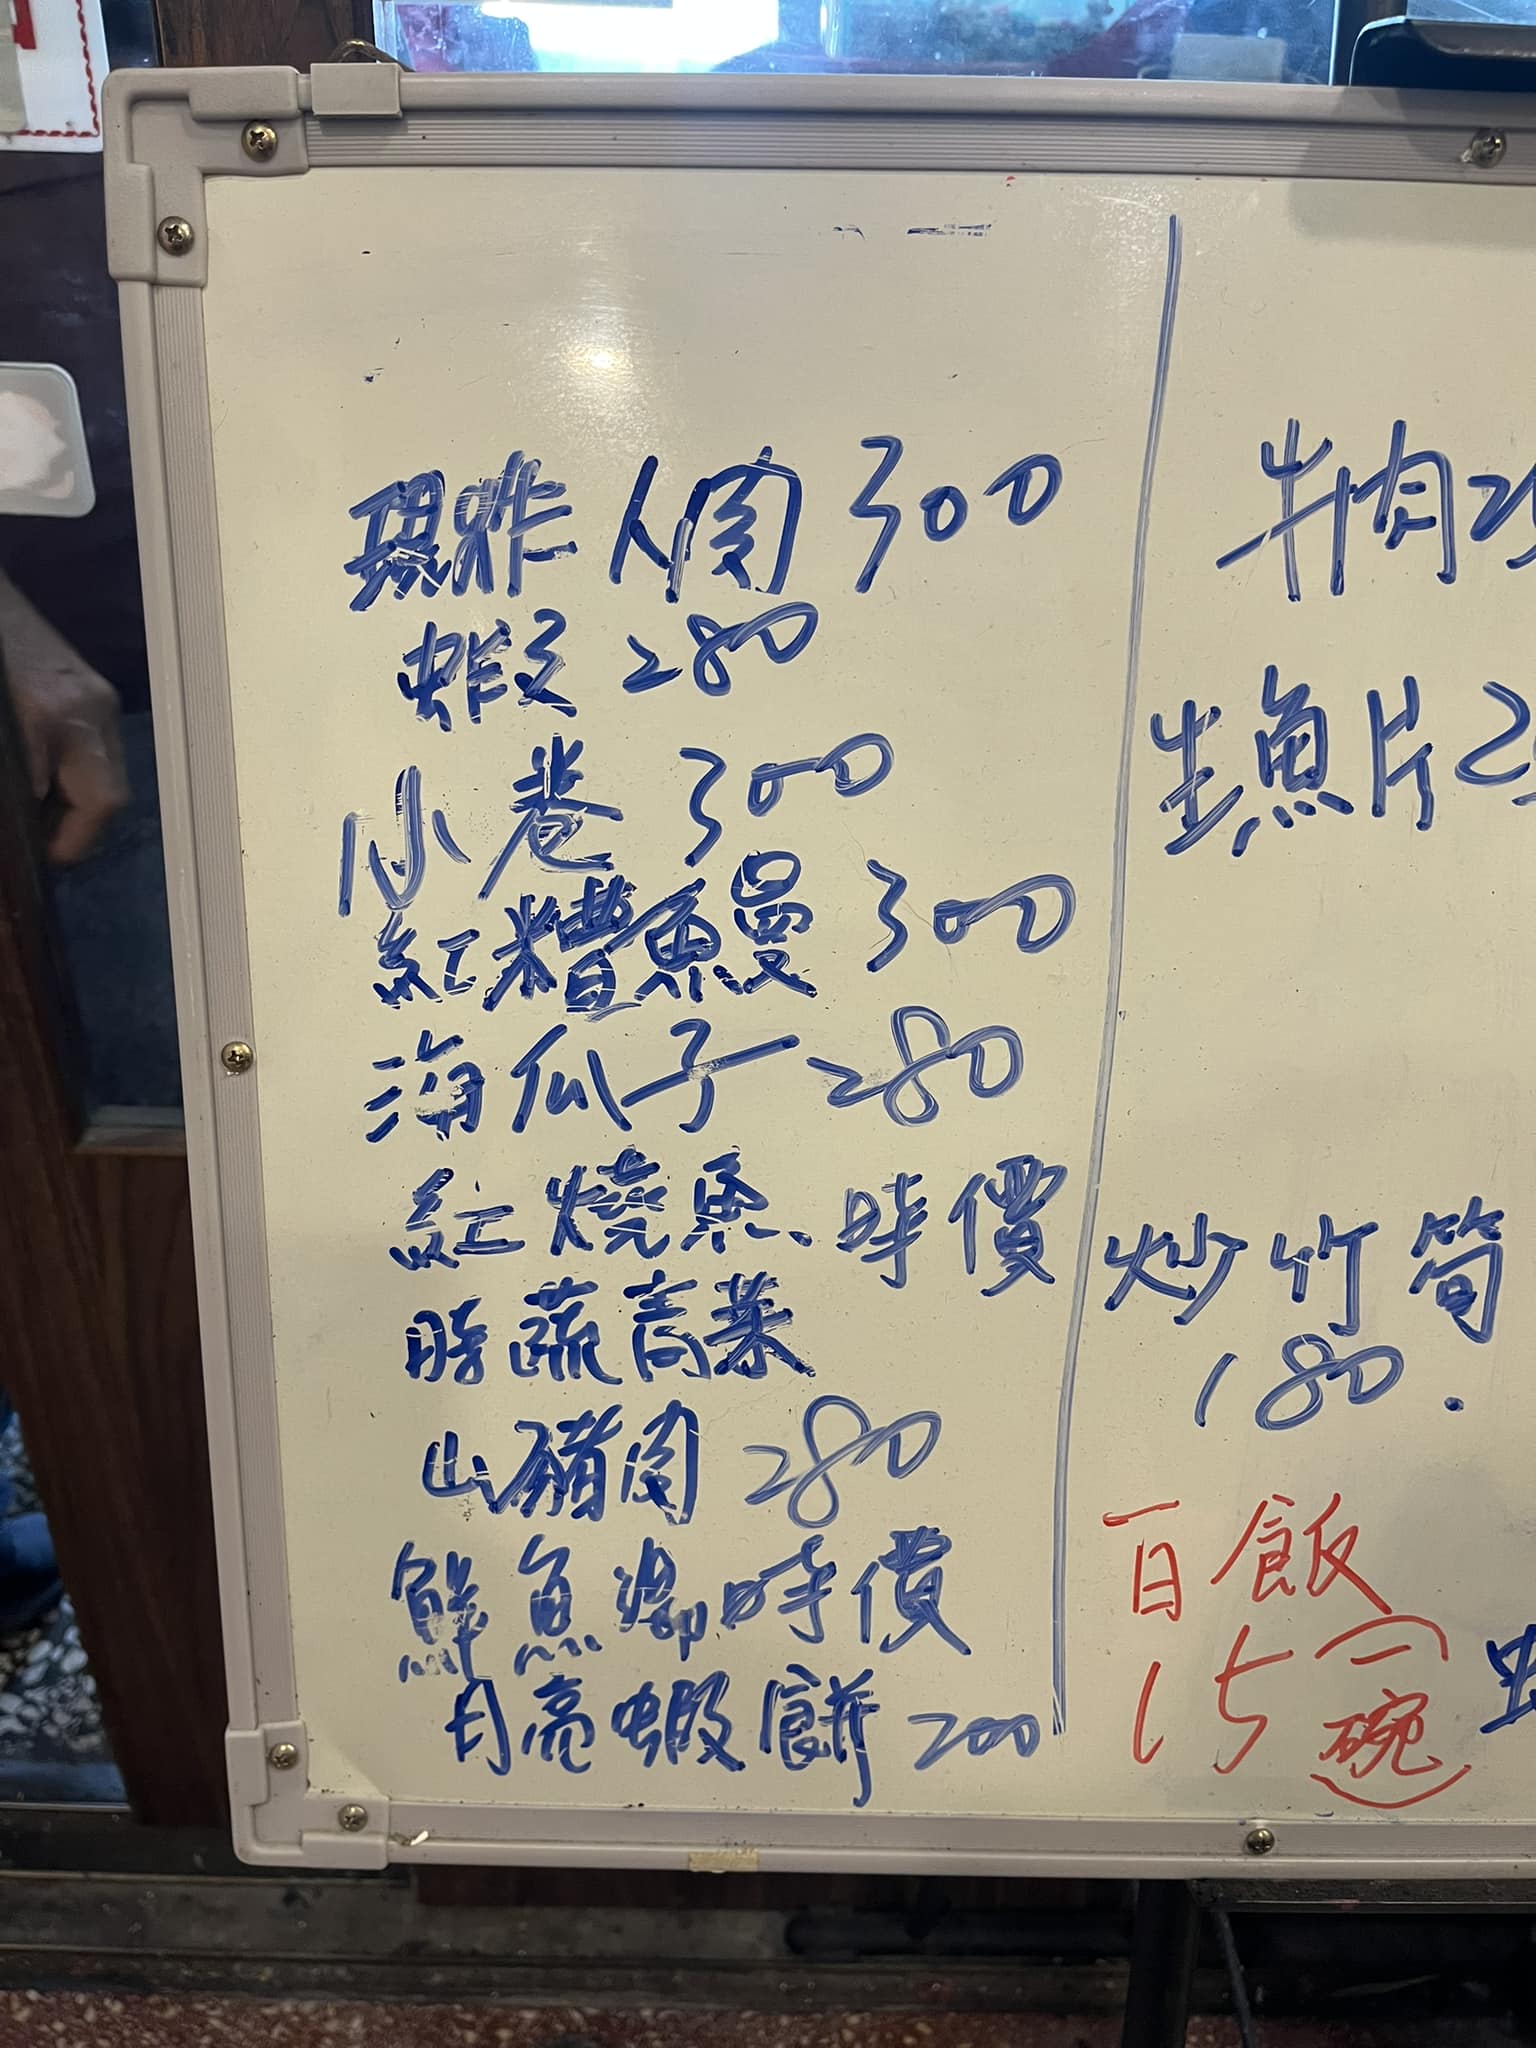 現炸人肉300
蝦280
小卷300
紅糟魚曼300
海瓜子280
紅燒魚、時價
時蔬青菜
山豬肉280
鮮魚湯時價
月亮蝦餅200
牛肉2
生魚片2
炒竹筍
180.
白飯
15(一碗)